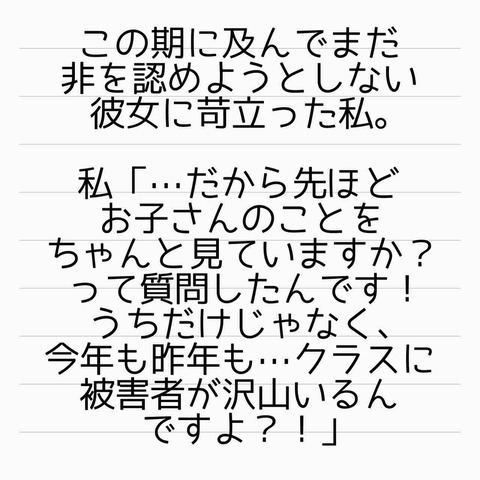 この期に及んでまだ
非を認めようとしない
彼女に苛立った私。
私「…だから先ほど
お子さんのことを
ちゃんと見ていますか？
って質問したんです！
うちだけじゃなく、
今年も昨年も…クラスに
被害者が沢山いるん
ですよ？！」